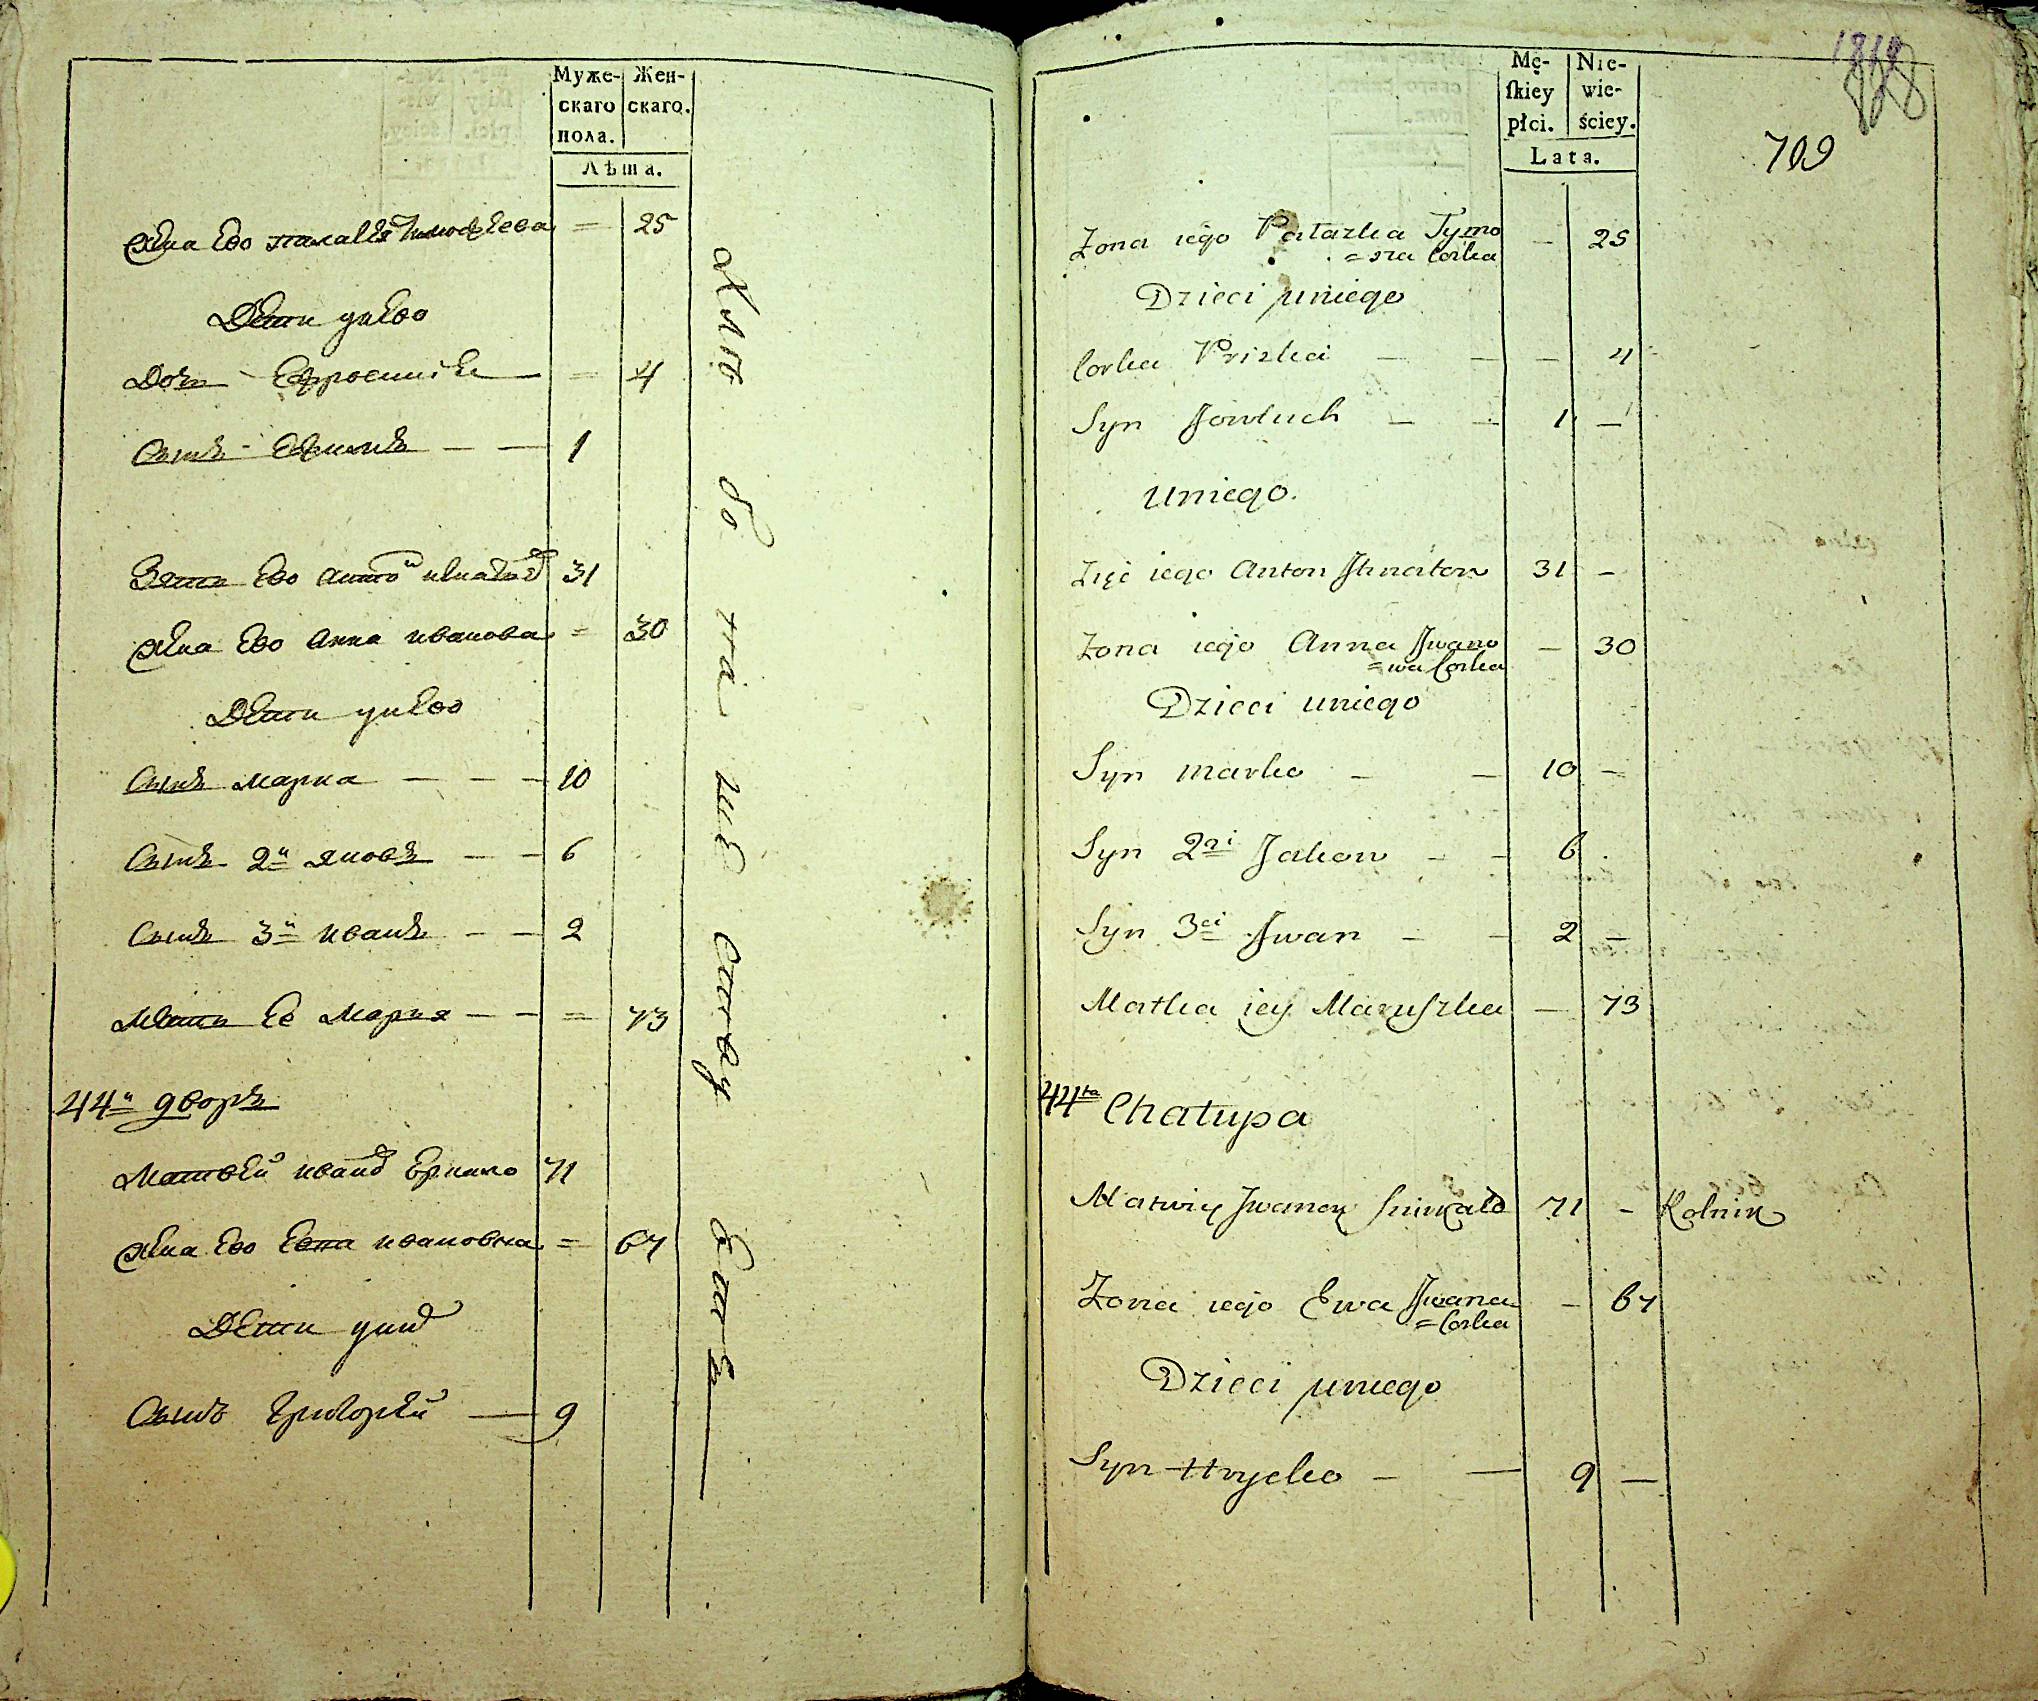 Муже-
скаго
пола.
Жен-
скаго.
Лѣта.
Жена Ево Палагѣя Тимофѣева = 25
Дѣти унево
Дочь Ефросинiя = 4
Сынъ Ефимъ 1
Зять Ево Антонъ Игнатовъ 31
Жена Ево Анна Иванова = 30
Дѣти унево
Сынъ Марка 10
Сынъ 2й Яковъ 6
Сынъ 3й Иванъ 2
Мать Ее Марья = 73
44й дворъ
Матвѣй Ивановъ 71
Жена Ево Евва Ивановна = 67
Дѣти унихъ
Сынъ Григорѣй 9
Mę-
skiey
płci.
Nie-
wie-
ściey.
Lata.
709
Żona iego Pałazka Tymo
=sza Corka — 25
Dzieci uniego
Corka Priska — 4
Syn Jowtuch 1 —
uniego.
Zięć iego Anton Ihnatow 31 —
Żona iego Anna Iwano
=wa Corka — 30
Dzieci uniego
Syn Marko 10 —
Syn 2gi Jakow 6
Syn 3ci Iwan 2 —
Matka iey Maruszka — 73
44ta Chałupa
Matwiey Iwanow 71 — Rolnik
Żona iego Ewa Iwana
=Corka — 67
Dzieci uniego
Syn Hrycko 9 —